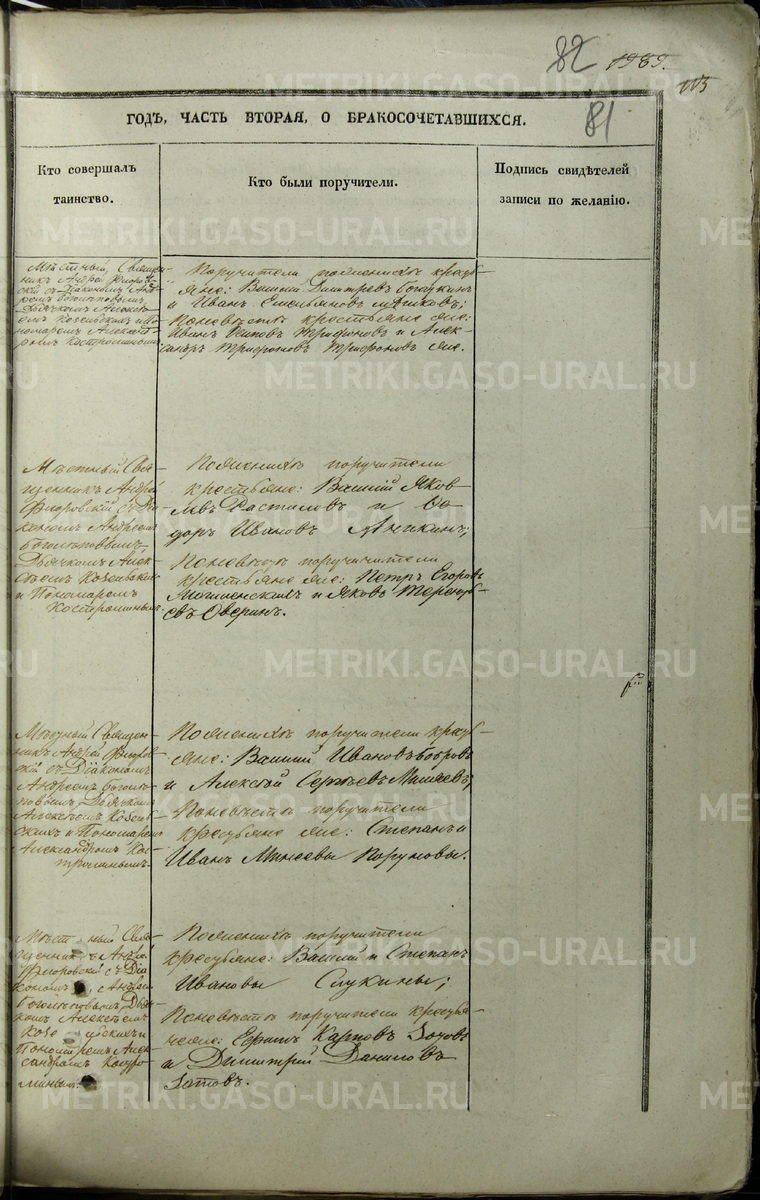 82 1989.
113
81
ГОДЪ, ЧАСТЬ ВТОРАЯ, О БРАКОСОЧЕТАВШИХСЯ.
Кто совершалъ
таинство.
Кто были поручители.
Подпись свидѣтелей
записи по желанію.
Мѣстный Священ-
никъ Андрей Флоров-
скій съ Діакономъ Анд-
реемъ Боголѣповымъ,
Дьячкомъ Алексѣ-
емъ Козельскимъ и По-
номаремъ Александ-
ромъ Костроминымъ
Поручители по женихѣ кресть-
яне: Василій Димитріевъ
и Иванъ Емельяновъ
По невѣстѣ крестьяне же:
Иванъ Трифоновъ и Алек-
сандръ Трифоновъ Трифоновъ же.
Мѣстный Свя-
щенникъ Андрей
Флоровскій съ Діа-
кономъ Андреемъ
Боголѣповымъ,
Дьячкомъ Алек-
сѣемъ Козельскимъ
и Пономаремъ
Костроминымъ.
По женихѣ поручители
крестьяне: Василій Яков-
левъ и Ѳе-
доръ Ивановъ Аникинъ;
По невѣстѣ поручичители
крестьяне же: Петръ Егоровъ
и Яковъ Теренть-
евъ Оверинъ.
Мѣстный Священ-
никъ Андрей Флоров-
скій съ Діакономъ
Андреемъ Боголѣ-
повымъ, Дьячкомъ
Алексѣемъ Козель-
скимъ и Пономаремъ
Александромъ Кос-
троминымъ.
По женихѣ поручители кресть-
яне: Василій Ивановъ Бобровъ
и Алексѣй Сергѣевъ
По невѣстѣ поручители
крестьяне же: Степанъ и
Иванъ Минеевы Коруновы.
Мѣстный Свя-
щенникъ Андрей
Флоровскій съ Діа-
кономъ Андреемъ
Боголѣповымъ, Дьяч-
комъ Алексѣемъ
Козельскимъ и
Пономаремъ Алек-
сандромъ Костро-
минымъ.
По женихѣ поручители
крестьяне: Василій и Степанъ
Ивановы
По невѣстѣ поручители кресть-
яне же: Ефимъ Карповъ Зотовъ
и Димитрій Даниловъ
Зотовъ.
METRIKI.GASO-URAL.RU